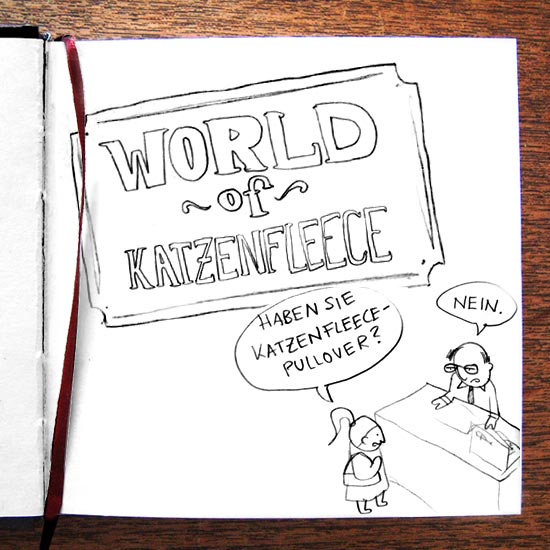 WORLD
of
KATZENFLEECE
HABEN SIE
KATZENFLEECE-
PULLOVER?
NEIN.